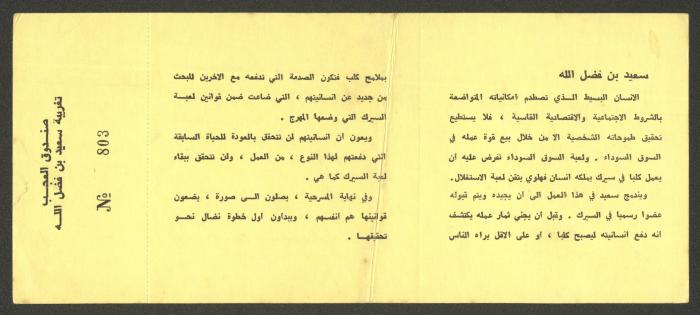 سعيد بن فضل الله
الانسان البسيط الذي تصطدم امكانياته المتواضعة
بالشروط الاجتماعية والاقتصادية القاسية ، فلا يستطيع
تحقيق طموحاته الشخصية الا من خلال بيع قوة عمله في
السوق السوداء . ولعبة السوق السوداء تفرض عليه ان
يعمل كلبا في سيرك يملكه انسان فهلوي يتقن لعبة الاستغلال.
ويندمج سعيد في هذا العمل الى ان يجيده ويتم قبوله
عضوا رسميا في السيرك . وقبل ان يجني ثمار عمله يكتشف
انه دفع انسانيته ليصبح كلبا ، او على الاقل يراه الناس
بملامح كلب فتكون الصدمة التي تدفعه مع الاخرين للبحث
من جديد عن انسانيتهم ، التي ضاعت ضمن قوانين لعبة
السيرك التي وضعها المهرج .
ويعون أن انسانيتهم لن تتحقق بالعودة للحياة السابقة
التي دفعتهم لهذا النوع ، من العمل ، ولن تتحقق ببقاء
لعبة السيرك كما هي .
وفي نهاية المسرحية ، يصلون الى صورة ، يضعون
قوانينها هم انفسهم ، ويبداون اول خطوة نضال نحو
تحقيقها .
صندوق العجب
تغريبة سعيد بن فضل الله
№ 803